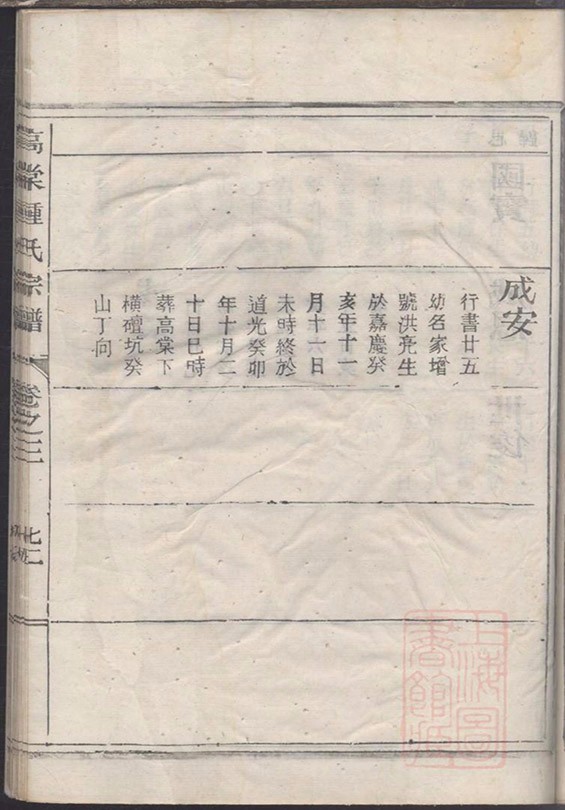 成安
行書廿五
幼名家增
號洪亮生
於嘉慶癸
亥年十一
月十六日
未時終於
道光癸卯
年十月二
十日巳時
葬高棠下
橫壇坑癸
山丁向
高棠鍾氏宗譜
卷之三
上海圖書館藏